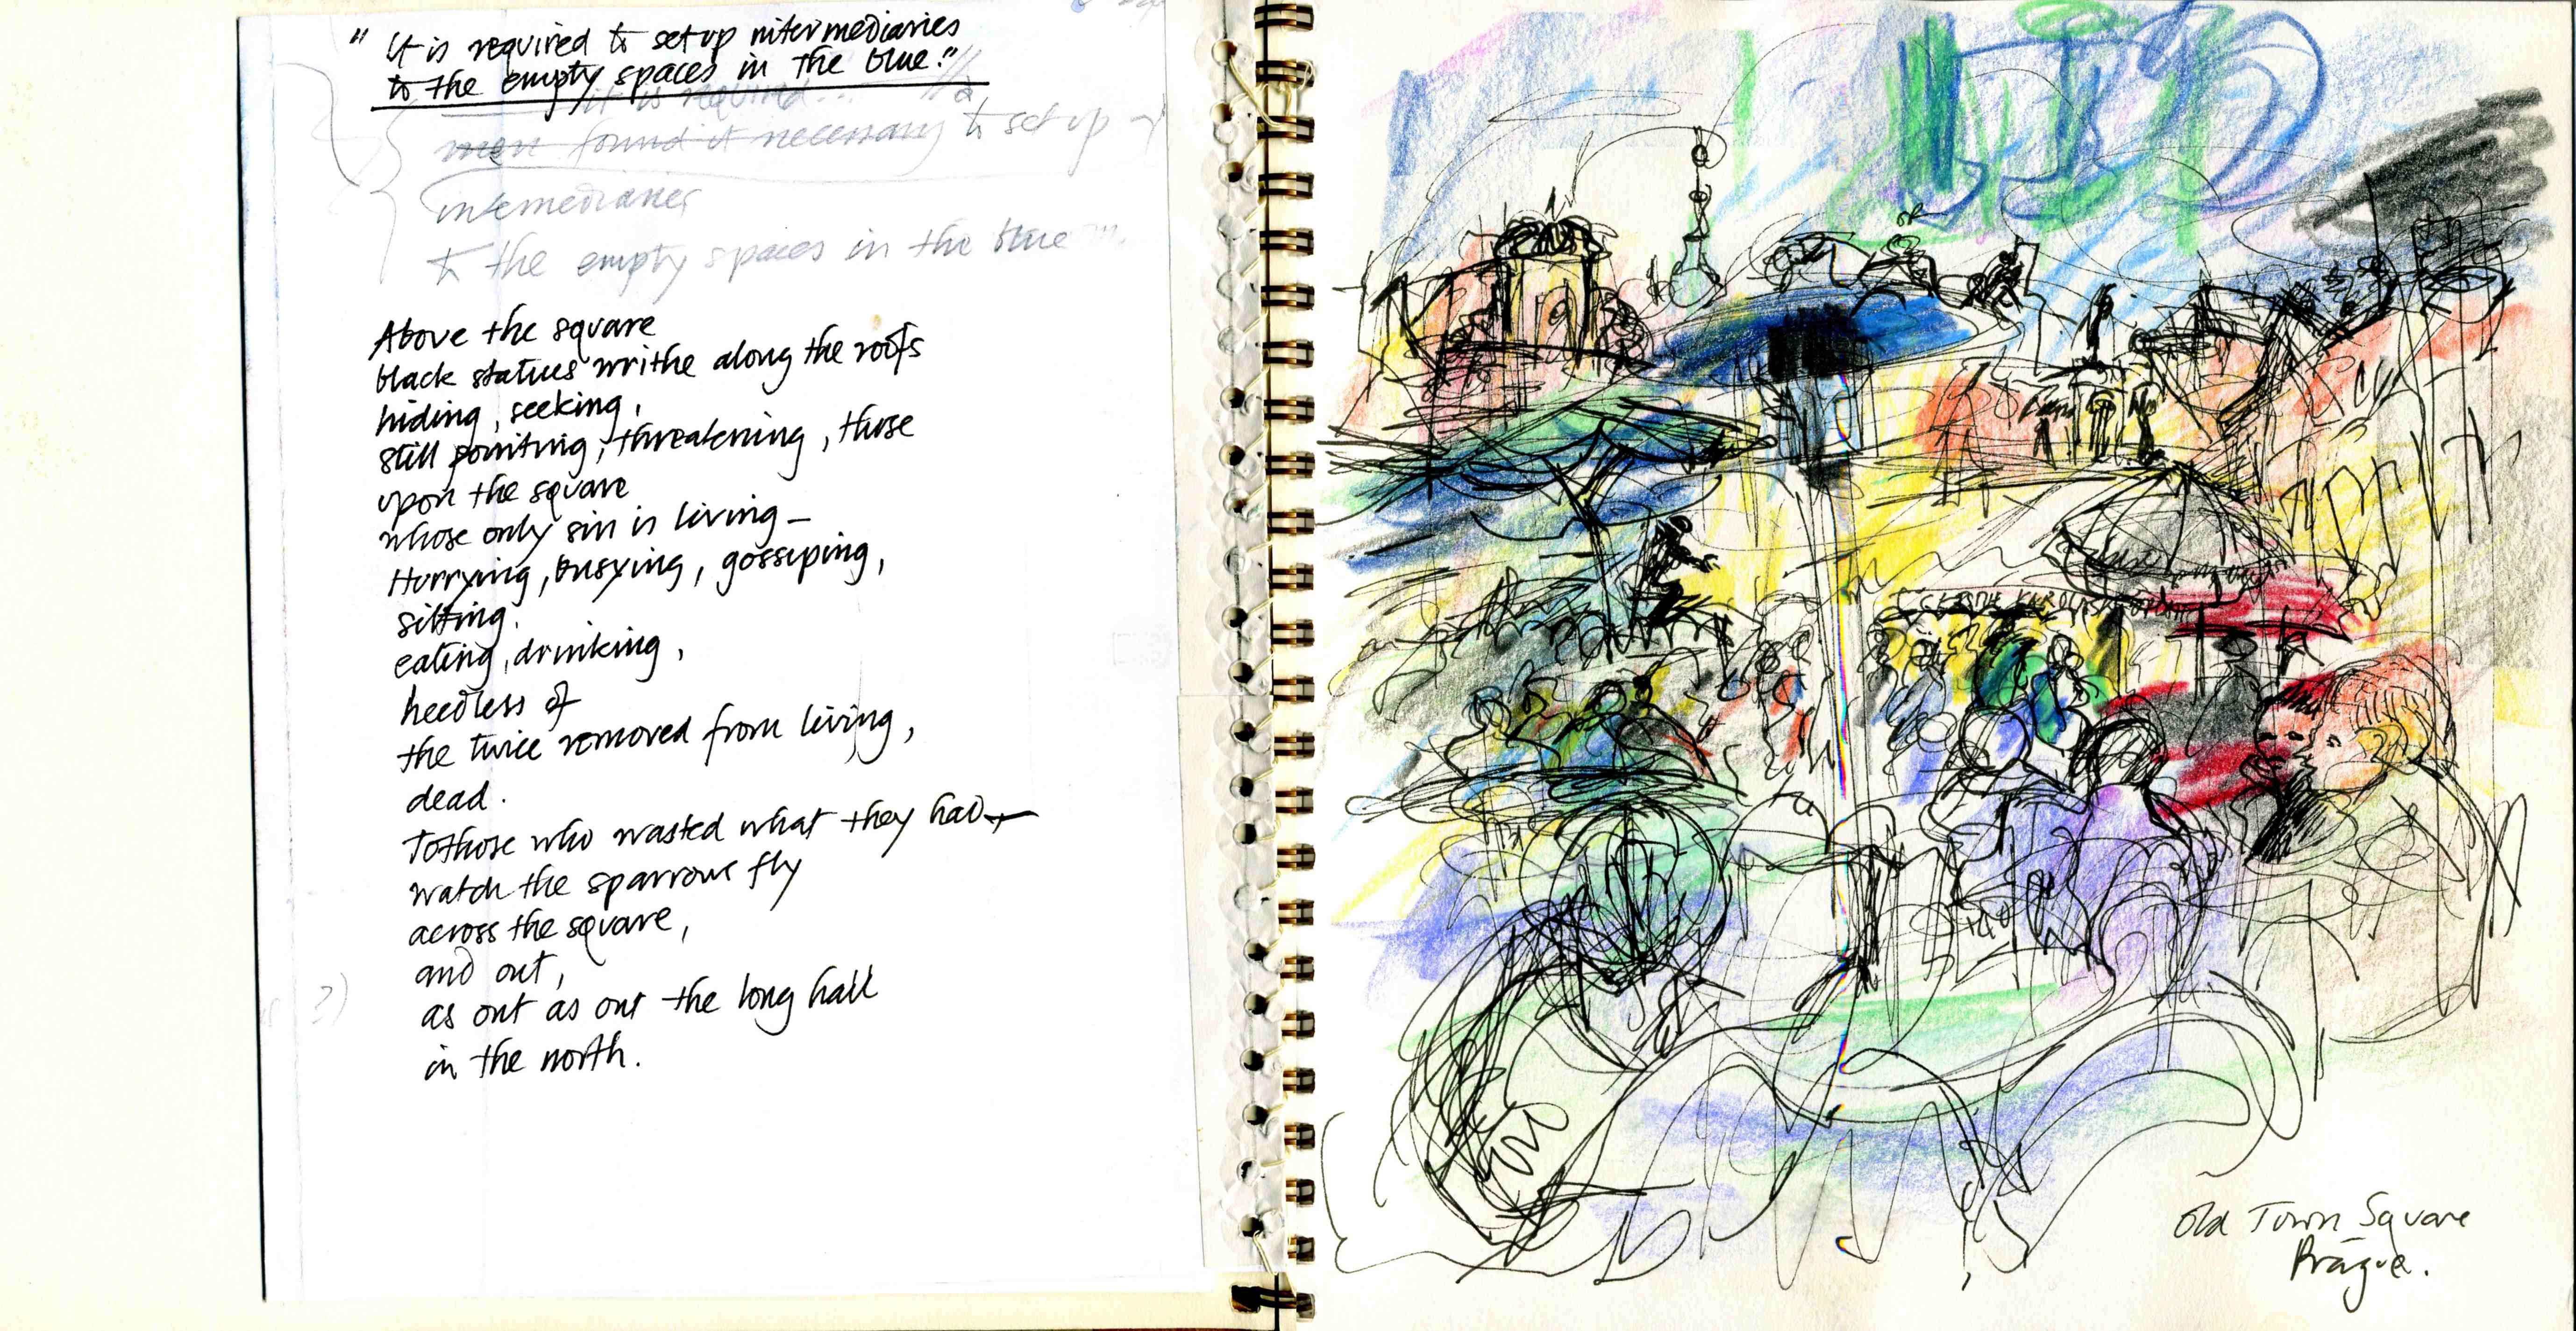 " It is required to set up intermediaries
to the empty spaces in the blue."
it is required...
men found it necessary to set up
intemediaries
to the empty spaces in the blue "
Above the square
black statues writhe along the roofs
hiding, seeking,
still pointing, threatening, those
upon the square
whose only sin is living –
Hurrying, busying, gossiping,
sitting.
eating, drinking,
heedless of
the twice removed from living,
dead.
To those who wasted what they had –
watch the sparrows fly
across the square,
and out,
as out as out the long hall
in the north.
Old Town Square
Prague.